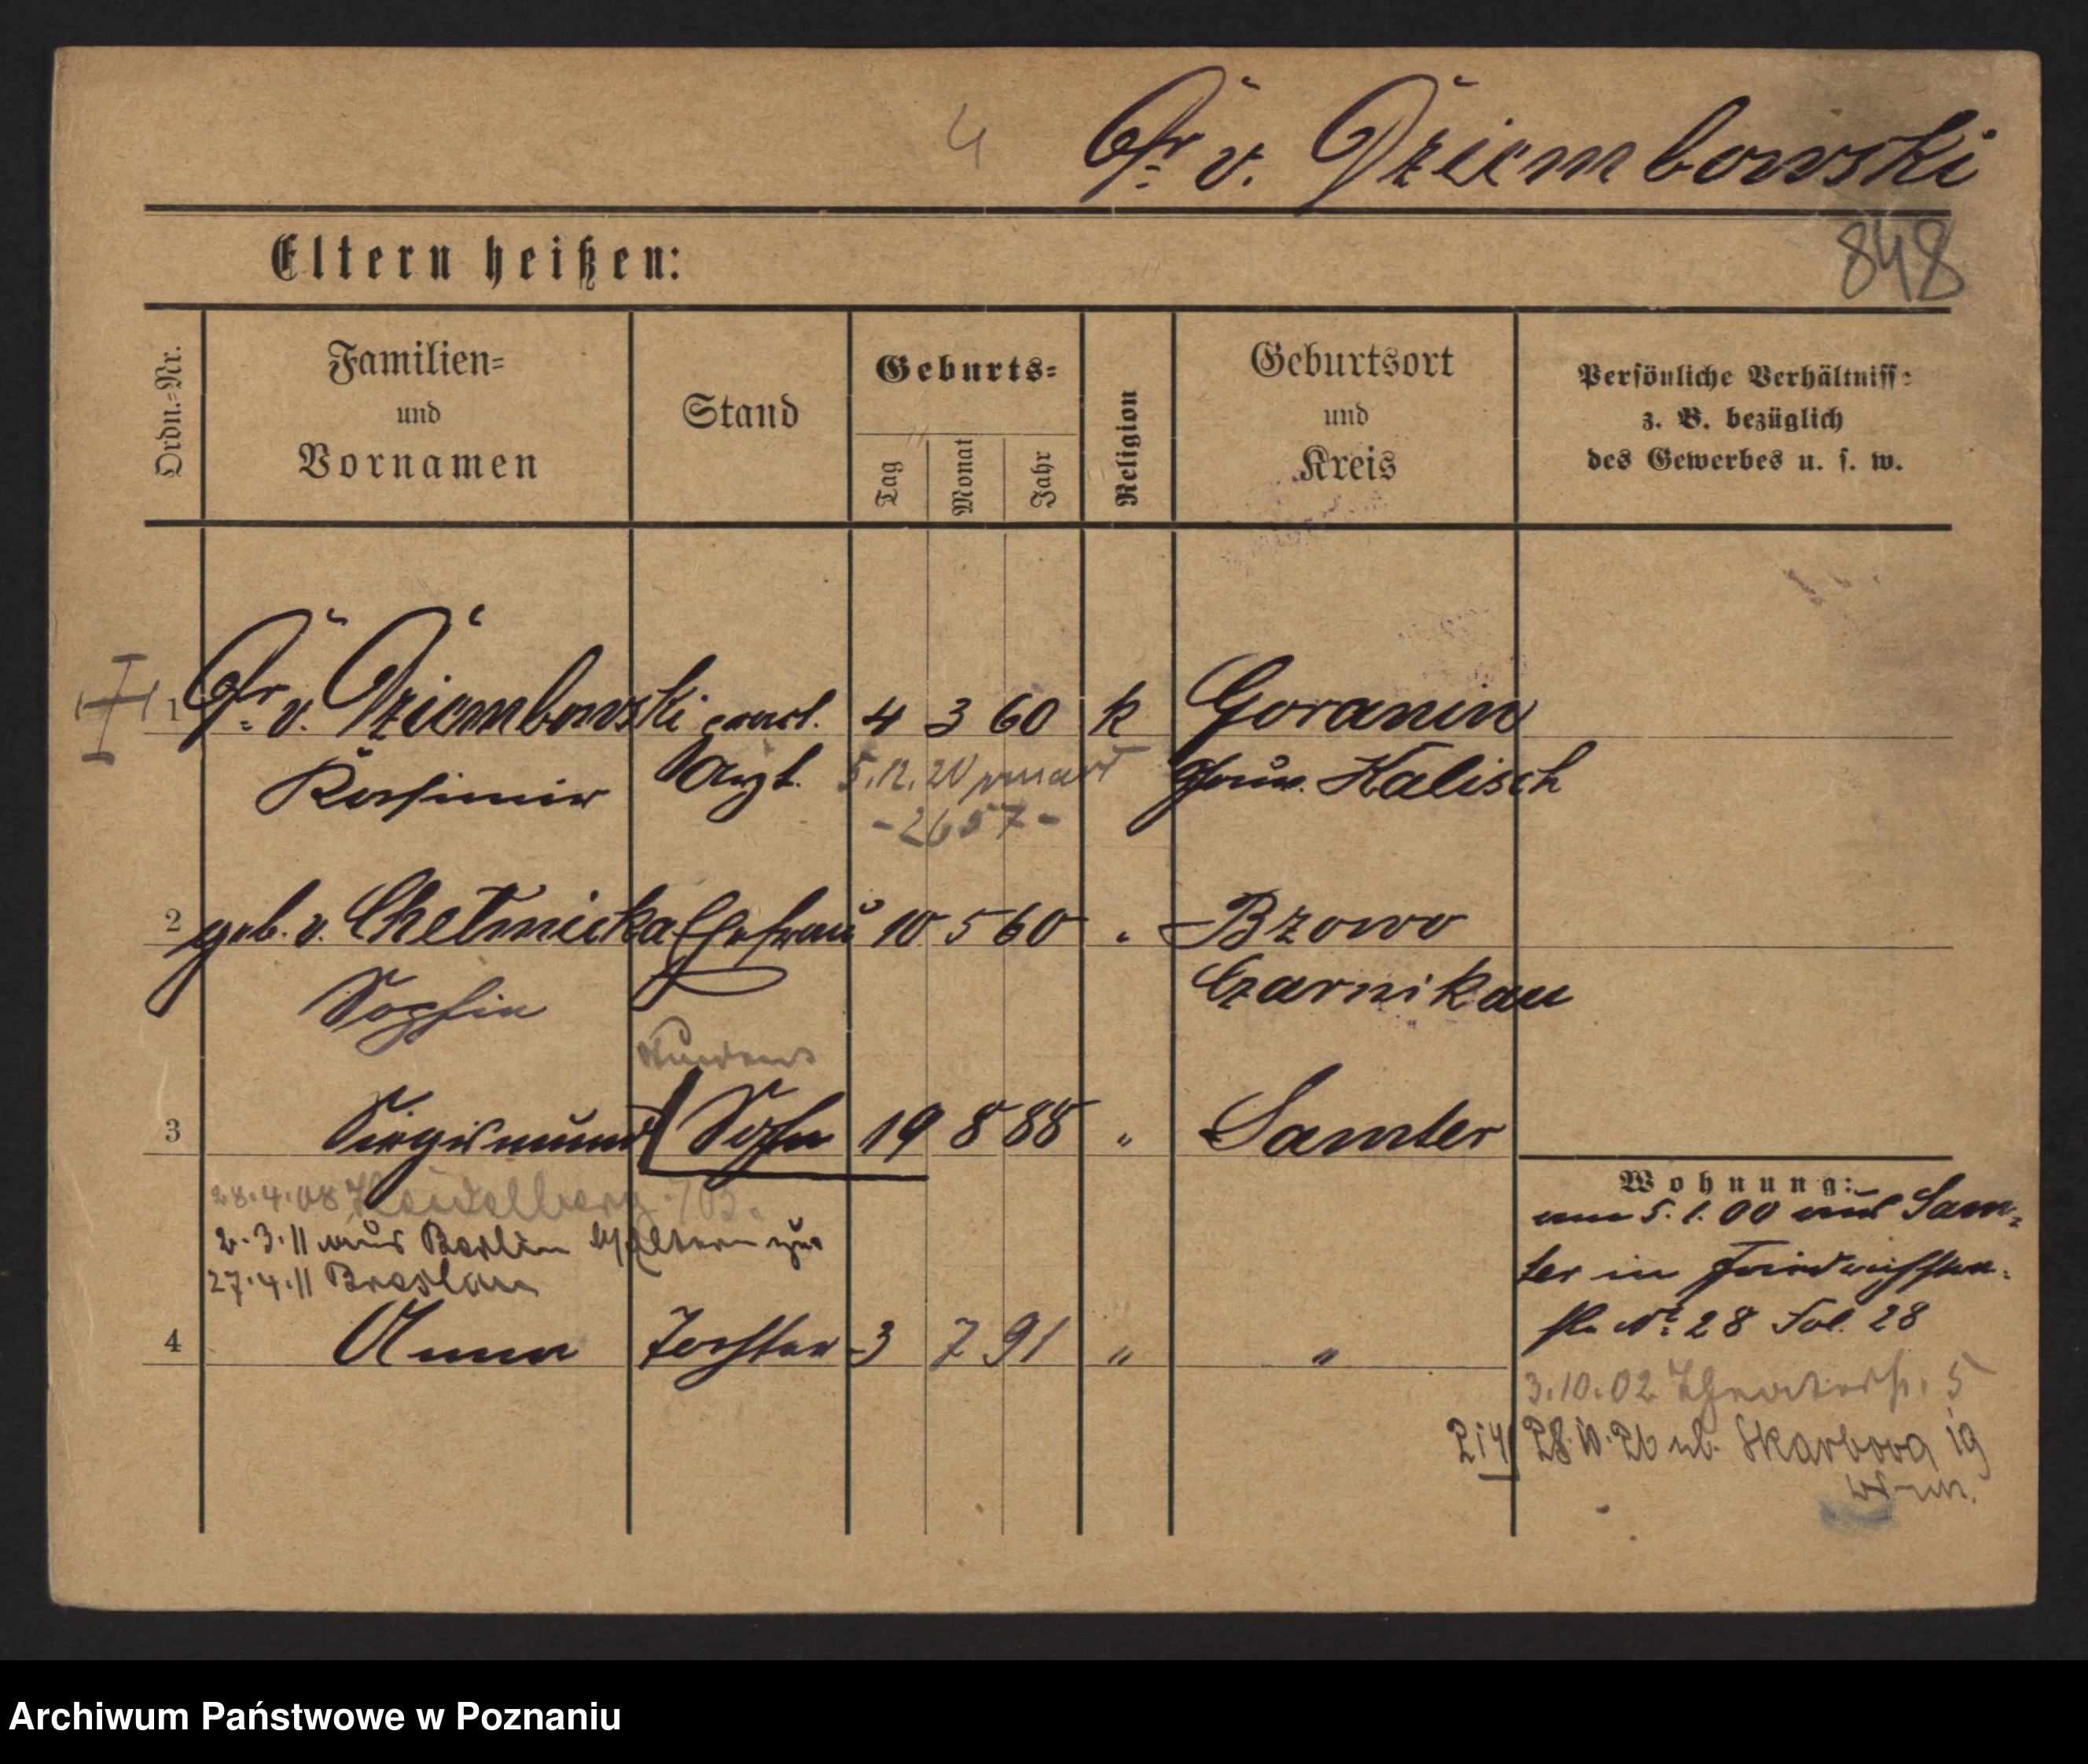 4
Dr. v. Dziembowski
848
Eltern heißen:
Ordn.-Nr.
Familien-
und
Vornamen
Stand
Geburts-
Tag
Monat
Jahr
Religion
Geburtsort
und
Kreis
Persönliche Verhältnisse
z. B. bezüglich
des Gewerbes u. s. w.
1 Dr. v. Dziembowski pract. 4 3 60 k Goranin
Kasimir Arzt. 5.12.20 Gouv. Kalisch
-2657-
2 geb. v. Chełmicka Ehefrau 10 5 60 " Brzowo
Sophie Czarnikau
Student
3 Siegismund Sohn 19 8 88 " Samter
28.4.08 Heidelberg
2.3.11 aus Berlin b/Eltern zur
27.4.11 Breslau
4 Anna Tochter 3 7 91 " "
Wohnung:
am 5.1.00 aus Sam-
ter in
Nr. 28 28
3.10.02 Theaterstr. 5
2 i 4 28.10.26 ul. Skarbowa 19
Archiwum Państwowe w Poznaniu